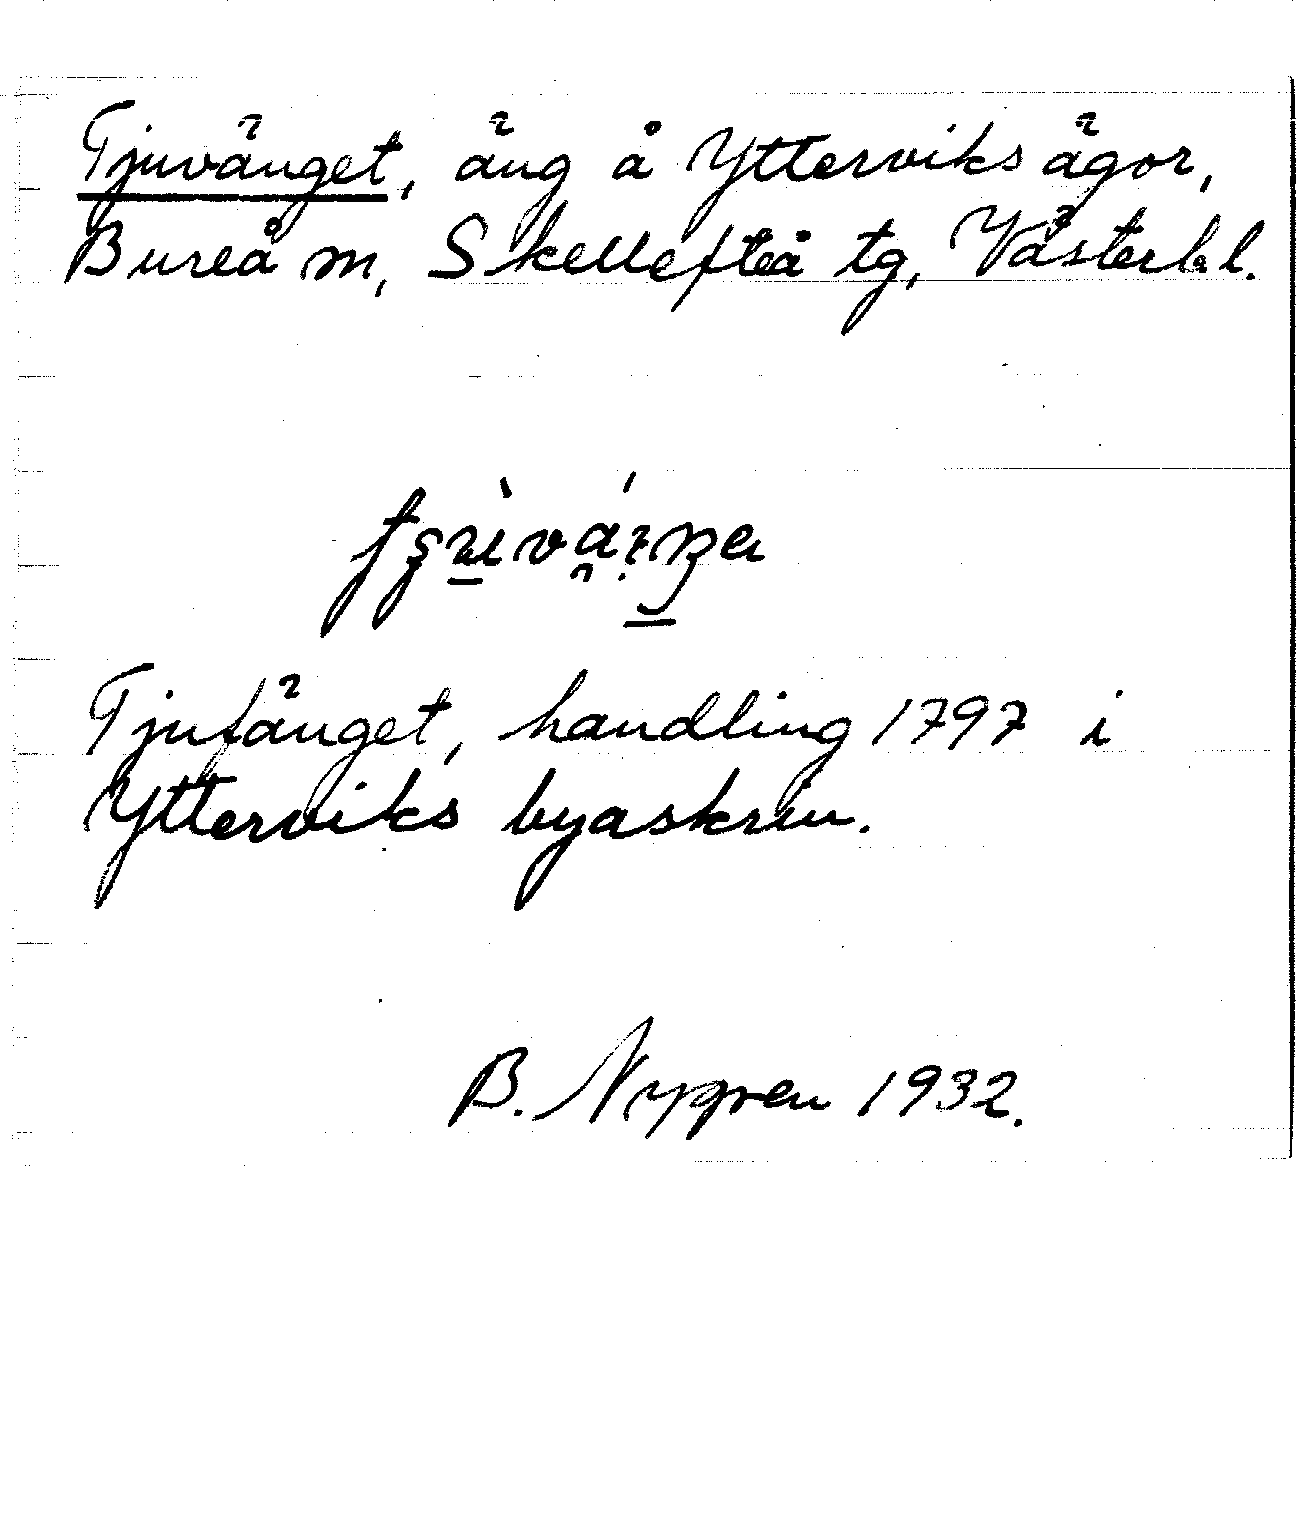 Tjuvänget, äng å Ytterviks ägor,
Bureå m, Skellefteå tg, Västerb l.
Tjufänget, handling 1797 i
Ytterviks byaskrin.
B. Nygren 1932.